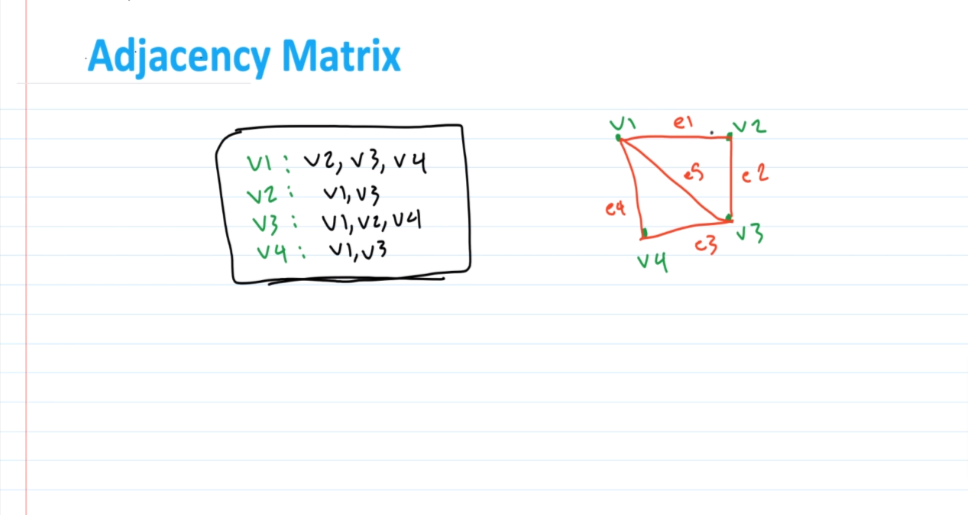 Adjacency Matrix
v1 : v2, v3, v4
v2 : v1, v3
v3 : v1, v2, v4
v4 : v1, v3
v1 e1 v2
e5 e2
e4
e3 v3
v4